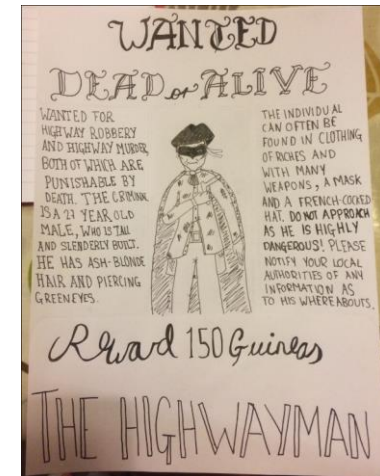 WANTED
DEAD or ALIVE
WANTED FOR
HIGHWAY ROBBERY
AND HIGHWAY MURDER,
BOTH OF WHICH ARE
PUNISHABLE BY
DEATH. THE CRIMINAL
IS A 27 YEAR OLD
MALE, WHO IS TALL
AND SLENDERLY BUILT.
HE HAS ASH-BLONDE
HAIR AND PIERCING
GREEN EYES.
THE INDIVIDUAL
CAN OFTEN BE
FOUND IN CLOTHING
OF RICHES AND
WITH MANY
WEAPONS, A MASK
AND A FRENCH-COCKED
HAT. DO NOT APPROACH
AS HE IS HIGHLY
DANGEROUS! PLEASE
NOTIFY YOUR LOCAL
AUTHORITIES OF ANY
INFORMATION AS
TO HIS WHEREABOUTS.
Reward 150 Guineas
THE HIGHWAYMAN